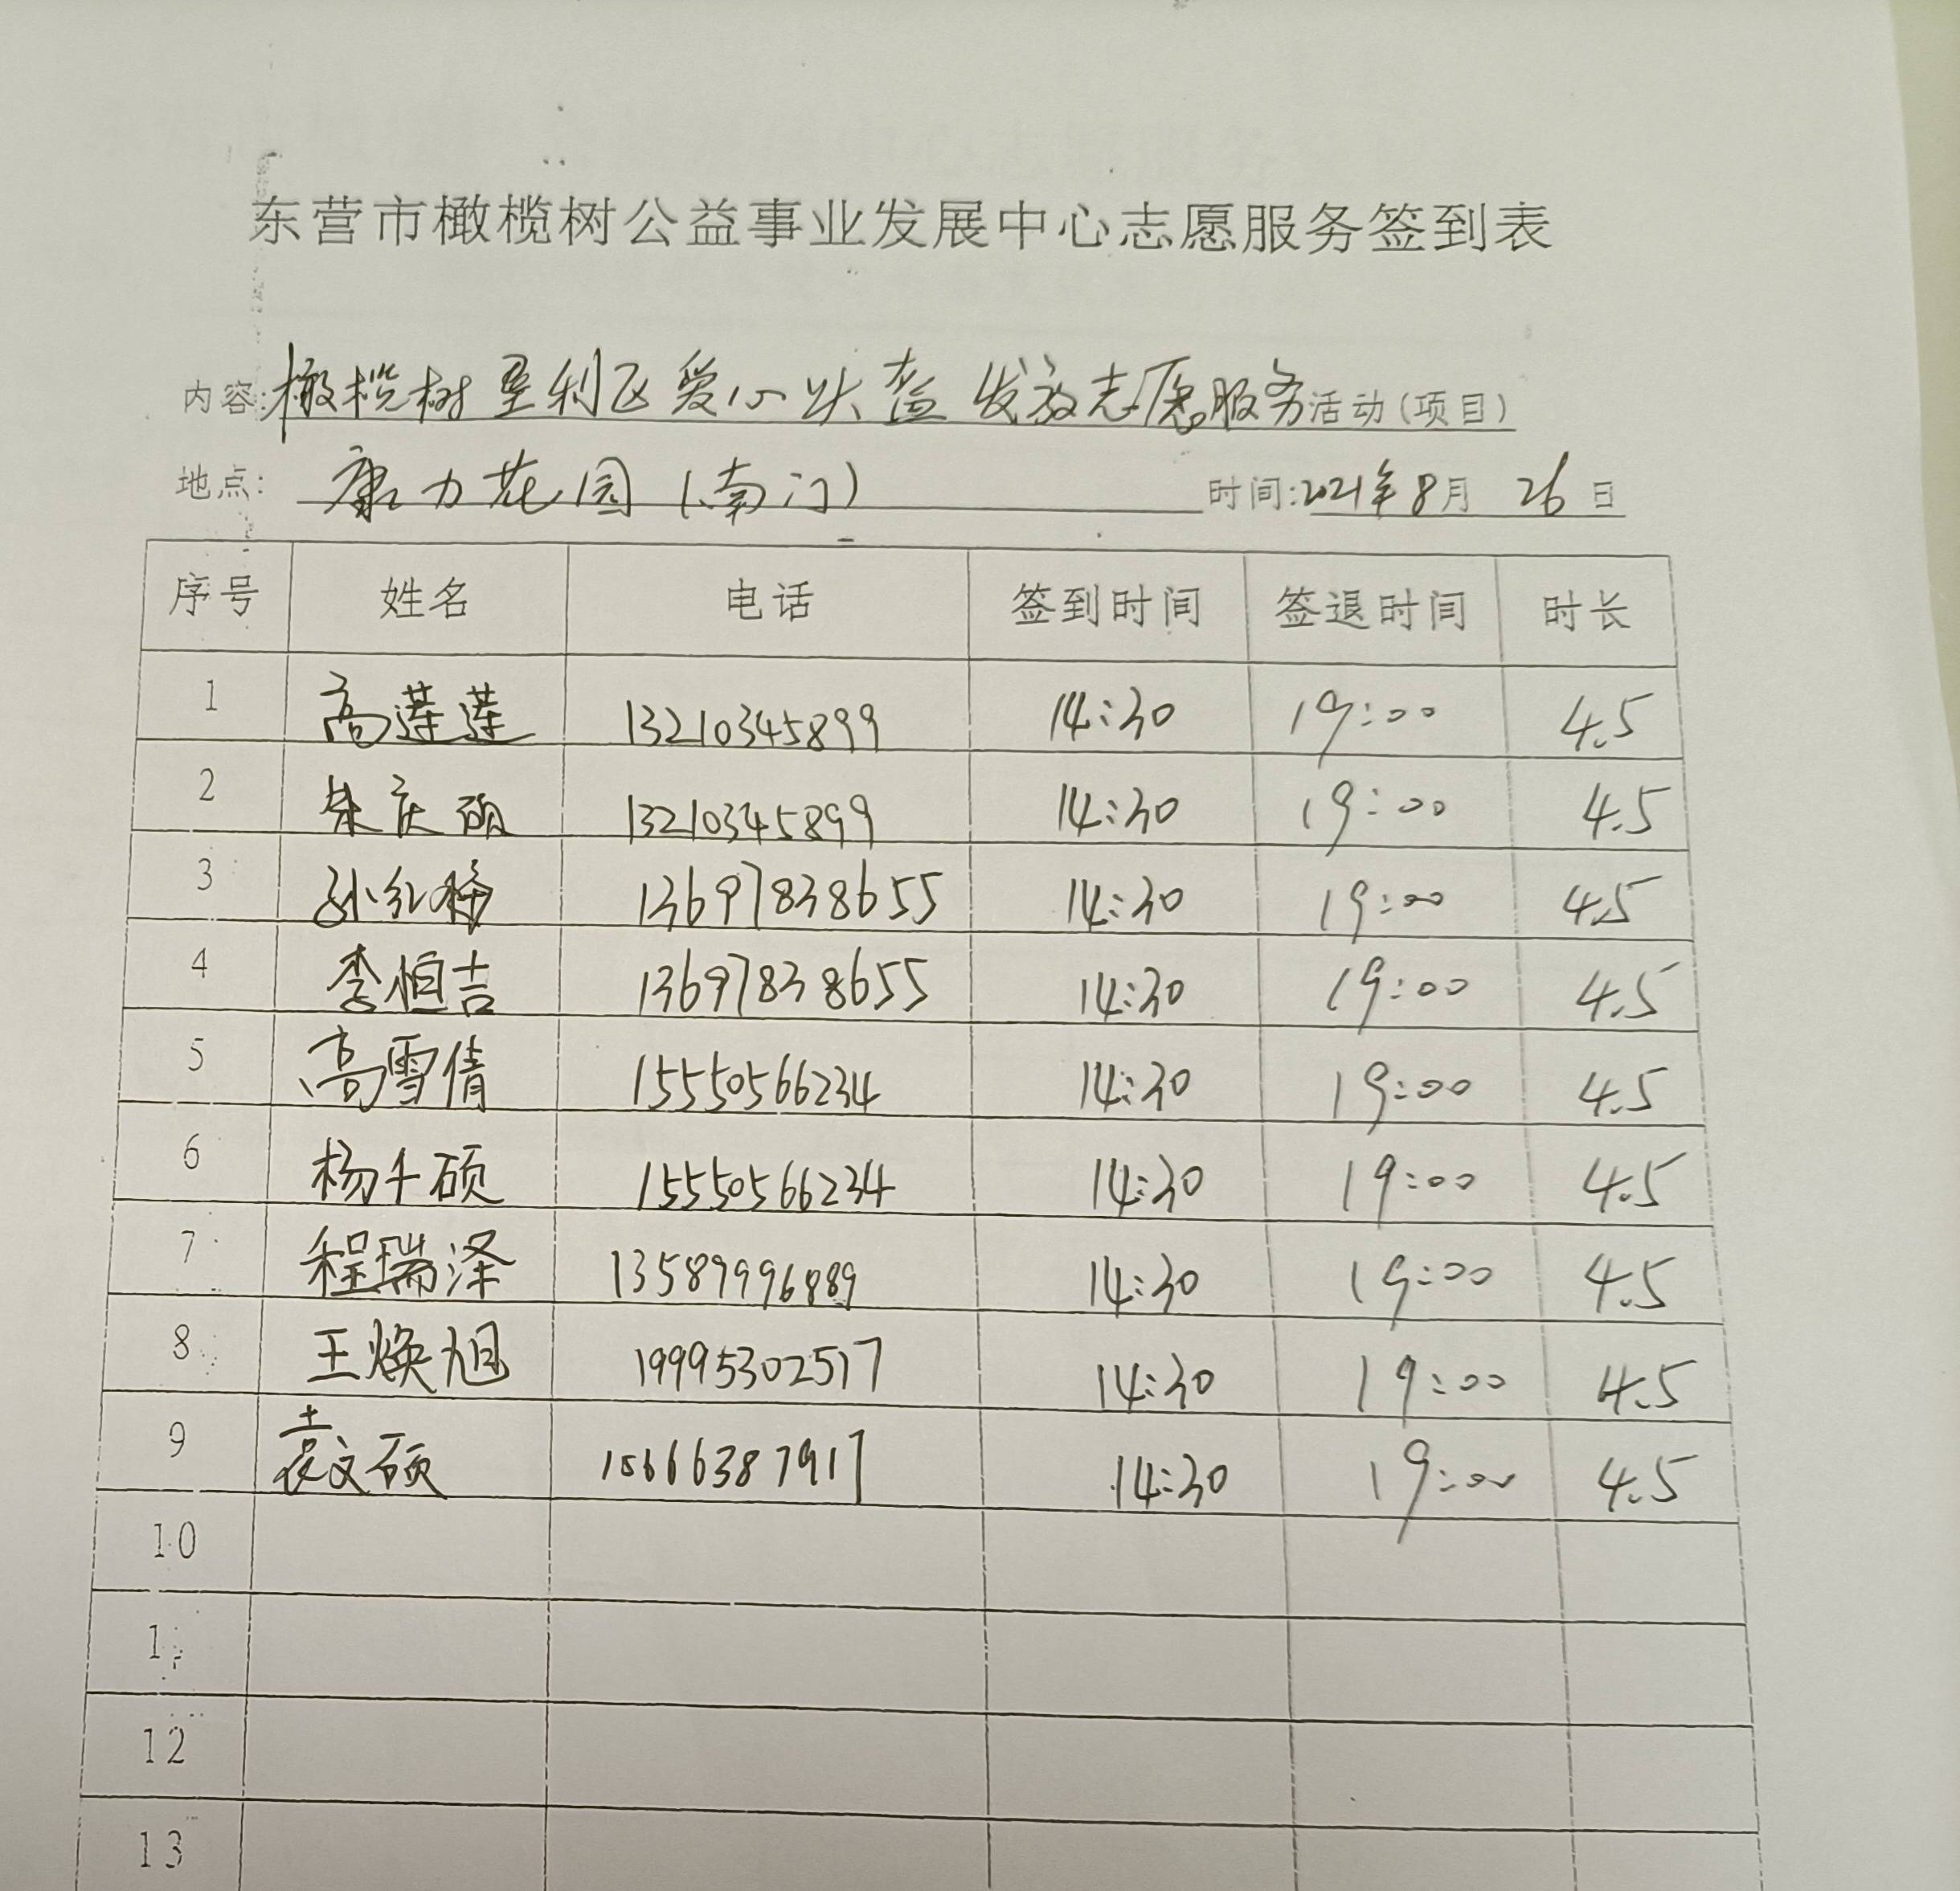 东营市橄榄树公益事业发展中心志愿服务签到表
内容:橄榄树垦利区爱心头盔发放志愿服务活动(项目)
地点: 康力花园(南门) 时间:2021年8月 26日
序号 姓名 电话 签到时间 签退时间 时长
1 高莲莲 13210345899 14:30 19:00 4.5
2 朱庆硕 13210345899 14:30 19:00 4.5
3 孙红梅 13697838655 14:30 19:00 4.5
4 李恒吉 13697838655 14:30 19:00 4.5
5 高雪倩 15550566234 14:30 19:00 4.5
6 杨千硕 15550566234 14:30 19:00 4.5
7 程瑞泽 13589996889 14:30 19:00 4.5
8 王焕旭 19995302517 14:30 19:00 4.5
9 袁文硕 15666387917 14:30 19:00 4.5
10
12
13